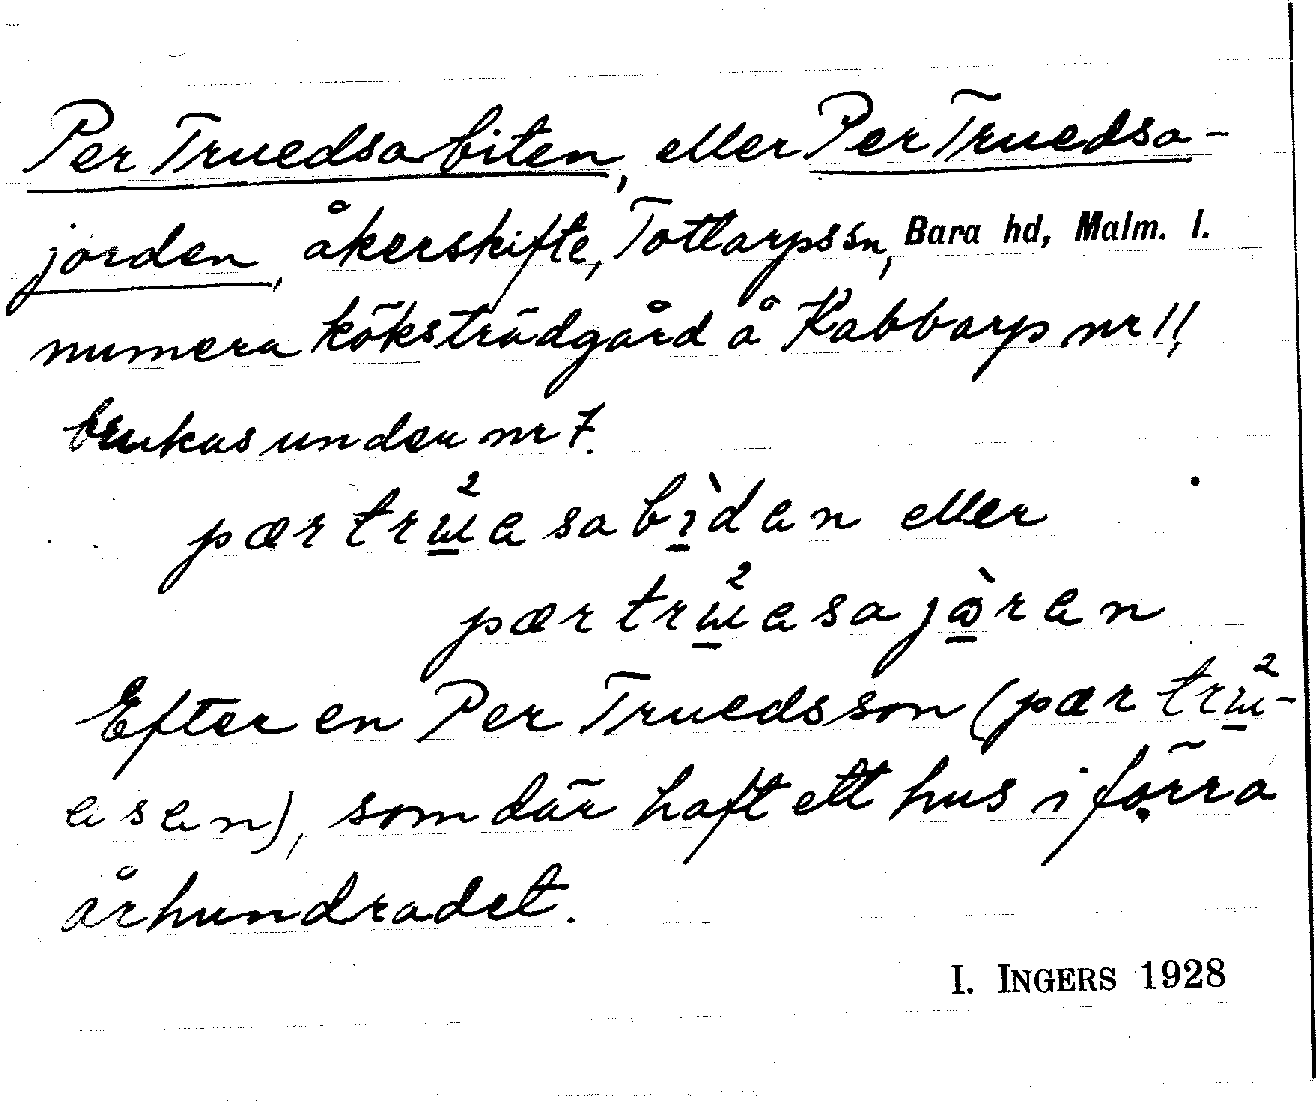 Per Truedsabiten, eller Per Truedsa-
jorden, åkerskifte, Tottarps sn, Bara hd, Malm. l.
numera köksträdgård å Kabbarp nr 11,
brukas under nr 7.
pær trɯ̲²əsabì̲dən eller
pær trɯ̲²əsajɷ̲̀rən
Efter en Per Truedsson (pær trɯ̲²-
əsən), som där haft ett hus i förra
århundradet.
I. INGERS 1928